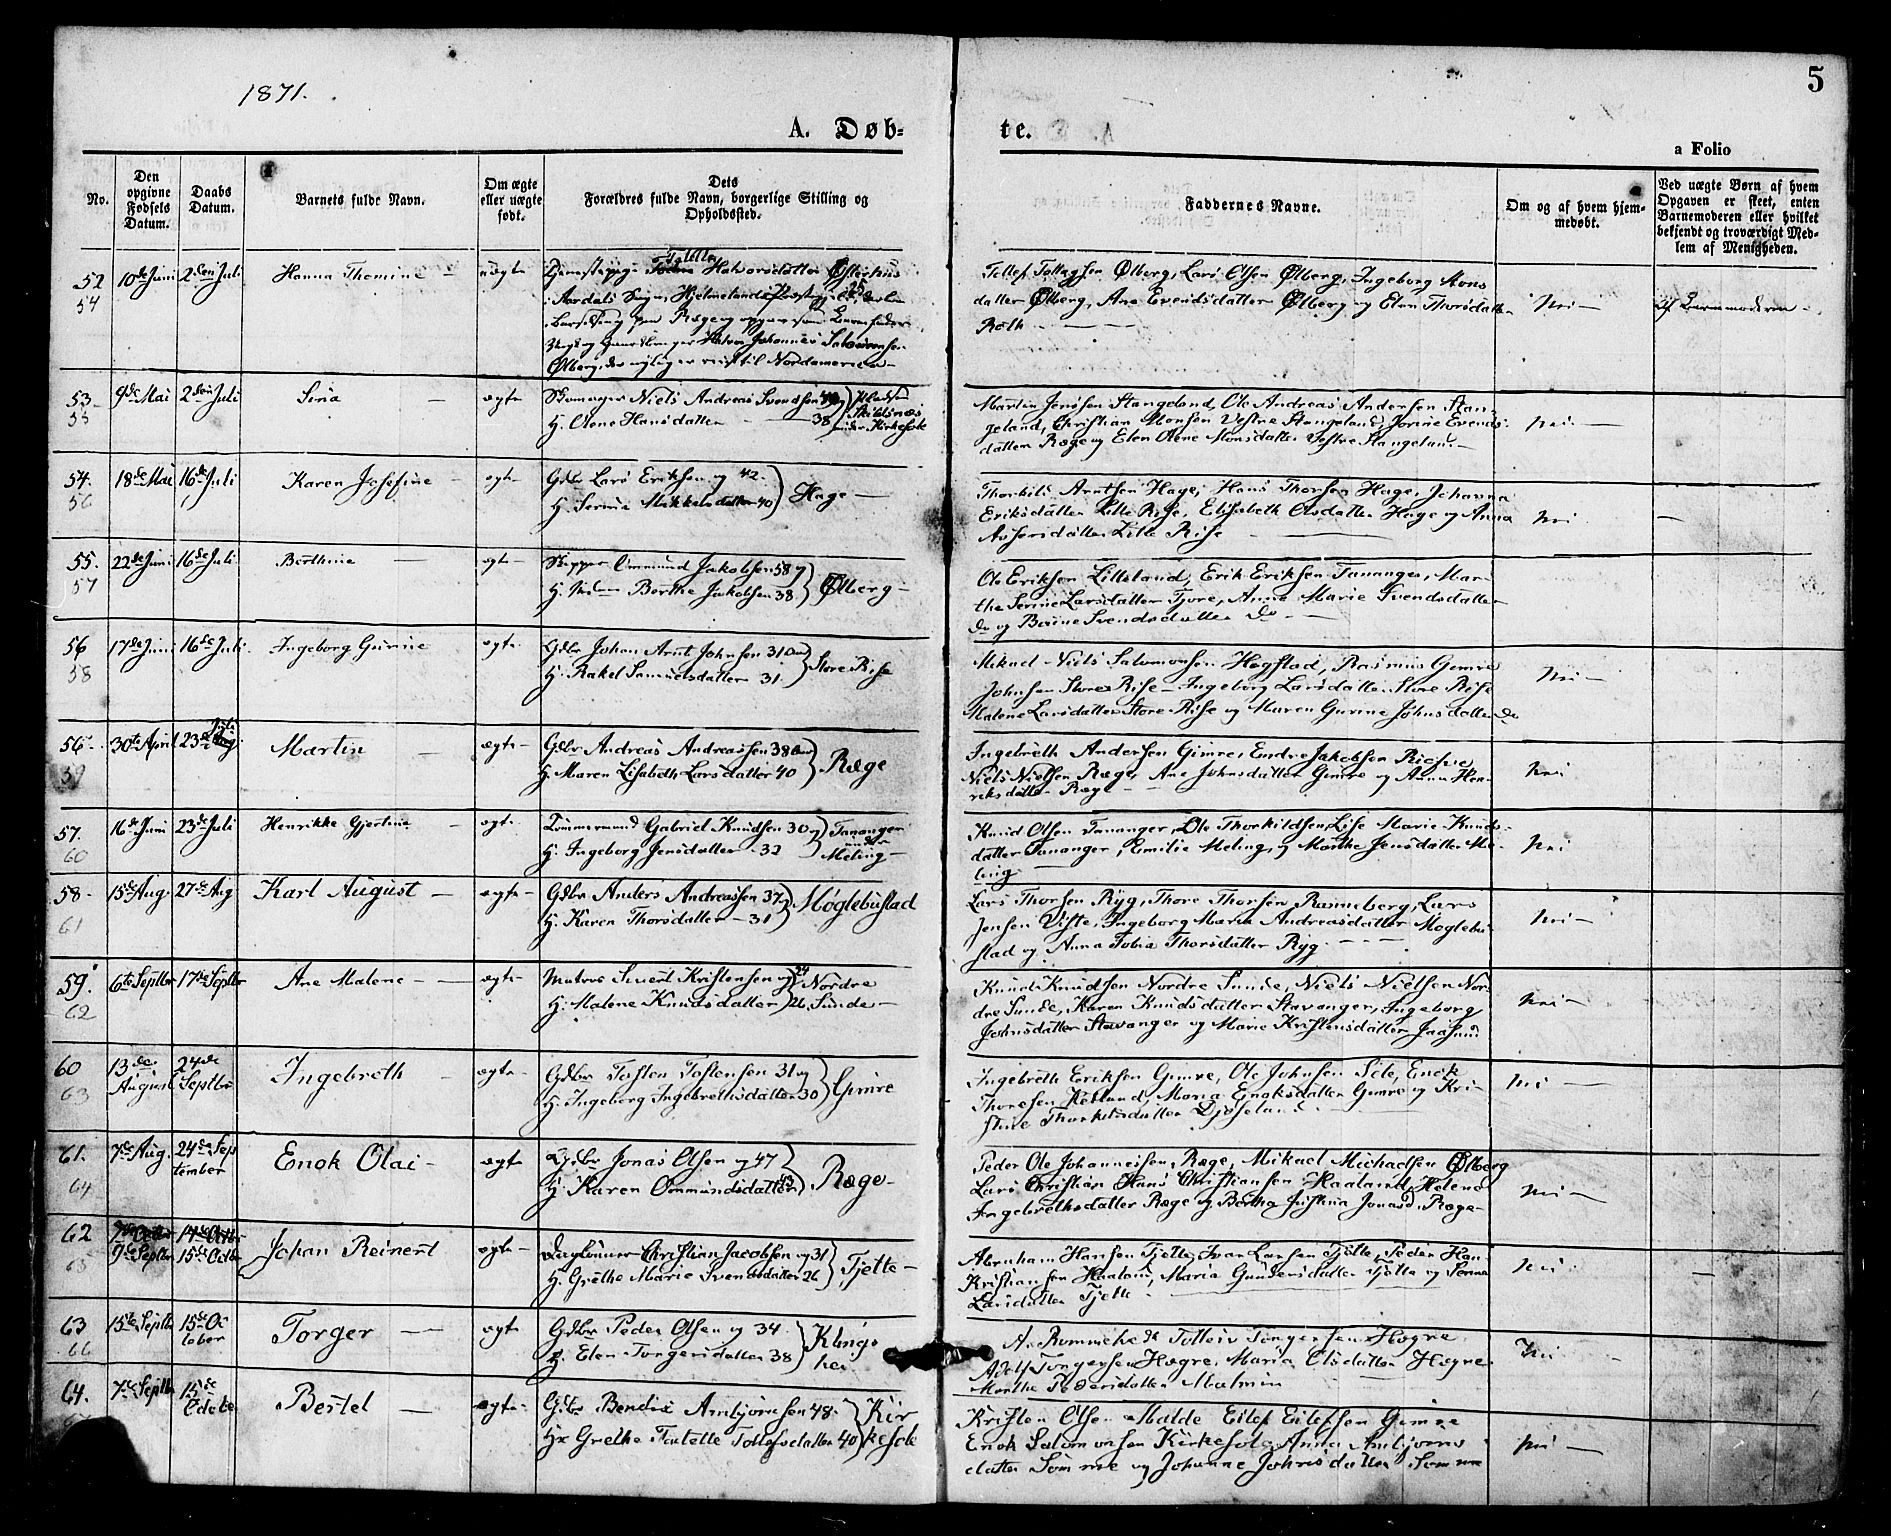 1871.
5
A. Døb-
te.
a Folio
No.
Den
opgivne
Fødsels
Datum.
Daabs
Datum.
Barnets fulde Navn.
Om ægte
eller uægte
født.
Dets
Forældres fulde Navn, borgerlige Stilling og
Opholdssted.
Faddernes Navne.
Om og af hvem hjem-
medøbt.
Ved uægte Børn af hvem
Opgaven er skeet, enten
Barnemoderen eller hvilket
bekjendt og troværdigt Med-
lem af Menigheden.
52
54
10de Juni
2den Juli
Hanna Thomine
uægte
Tjenestepige Halvorsdatter
Aardals Sogn, Hjelmelands Præstegj.
Ræge og opgav som Barnefader
Halvor Johannes Salomonsen
Ølberg, der nylig er reist til Nordamerica
Tollef Tollefsen Ølberg, Lars Olsen Ølberg, Ingeborg Mons
datter Ølberg, Ane Evendsdatter Ølberg og Elen Thorsdatter
Roth
Nei
Af Barnemoderen
53
55
9de Mai
2den Juli
Siria
ægte
Skomager Niels Andreas Svendsen
H. Olene Hansdatter 38
under Kirkesole
Martin Jensen Stangeland, Ole Andreas Andersen Stan-
geland, Christian Monsen Vestre Stangeland, Jorine Evends-
datter Ræge og Elen Olene Monsdatter Vestre Stangeland
Nei
54.
56
18de Mai
16de Juli
Karen Josefine
ægte
Gdbr Lars Eriksen og 42
H. Serine Mikkelsdatter 40
Hage
Thorkils Arntsen Hage, Hans Thorsen Hage, Johanna
Eriksdatter Lille Risse, Elisabeth Olsdatter Hage og Anna
Lille Risse
Nei
55.
57
22de Juni
16de Juli
Berthine
ægte
Skipper Ommund Jakobsen 58 og
H. Berthe Jakobsen 38
Ølberg
Ole Eriksen Lilleland, Erik Eriksen Tananger, Mar-
the Serine Larsdatter Tjore, Anne Marie Svendsdatter
Do og Berine Svendsdatter Do
56
58
17de Juni
16de Juli
Ingeborg Gurine
ægte
Gdbr Johan Arnt Johnsen 31 og
H. Rakel Samuelsdatter 31
Store Risse
Mikael Niels Salomonsen Hogstad, Rasmus Gimre
Johnsen Store Risse Ingeborg Larsdatter Store Risse
Malene Larsdatter Store Risse og Maren Gurine Johnsdatter do
Nei
56
59
30te April
23de Juli
Martin
ægte
Gdbr Andreas Andreassen 38 og
H. Maren Lisabeth Larsdatter 40
Ræge
Ingebreth Andersen Gimre, Endre Jakobsen
Niels Nielsen Ræge, Ane Johnsdatter Gimre og Anna Hen-
riksdatter Ræge
Nei
57.
60
16de Juni
23de Juli
Henrikke Gjertine
ægte
Tømmermand Gabriel Knudsen 30 og
H. Ingeborg Jensdatter 32
Tananger
under
Meling
Knud Olsen Tananger, Ole Thorkildsen, Lise Marie Knuds-
datter Tananger, Emilie Meling, og Marthe Jensdatter Me-
ling
Nei
58
61
15de Aug.
27de Aug
Karl August
ægte
Gdbr Anders Andreassen 37 og
H. Karen Thorsdatter 31
Møglebustad
Lars Thorsen Ryg, Thore Thorsen Ranneberg, Lars
Jensen Viste, Ingeborg Maria Andreasdatter Moglebu-
stad og Anna Tobia Thorsdatter Ryg
Nei
59.
62
6te Septbr
17de Septbr
Ane Malene
ægte
Matros Sivert Kristensen og 24
H. Malene Knudsdatter 26
Nordre
Sunde
Knud Knudsen Nordre Sunde, Niels Nielsen Nor-
dre Sunde, Karen Knudsdatter Stavanger, Ingeborg
Johnsdatter Stavanger og Marie Kristensdatter Jaasund
Nei
60
63
13de
August
24de
Septbr
Ingebreth
ægte
Gdbr Tosten Tostensen 31 og
H. Ingeborg Ingebrethsdatter 30
Gimre
Ingebreth Eriksen Gimre, Ole Johnsen Sele, Enok
Thoresen Ketland, Maria Enoksdatter Gimre og Kri-
stine Thorkildsdatter Djøseland
Nei
61.
64
7de Aug.
24de Sep
tember
Enok Olai
ægte
Gdbr Jonas Olsen og 47
H. Karen Ommundsdatter 43
Ræge
Peder Ole Johannesen, Ræge, Mikael Michaelsen Ølberg
Lars Christian Hans Christiansen Haaland, Helene
Ingebrethsdatter Ræge og Bertha Justina Jonasd. Ræge
Nei
62
65
7de Octbr
9de Septbr
14de Octbr
15de Octbr
Johan Reinert
ægte
Daglønner Christian Jacobsen og 31
H. Grethe Marie Svendsdatter 26
Tjette
Abraham Hansen Tjette, Ivar Larsen Tjette, Peder Han
Kristiansen Haaland, Maria Gundersdatter Tjøtta og Serina
Larsdatter Tjette
Nei
63
66
15de Septbr
15de Oc
tober
Torger
ægte
Gdbr Peder Olsen og 34
H. Elen Torgersdatter 38
Klings
hei
Tolleiv Torgersen Hogne
Adolf Torgersen Hægre, Maria Olsdatter Hogne
Marthe Pedersdatter Malmin
Nei
64.
7de Septbr
15de
Octobr
Bertel
ægte
Gdbr Bendix Ambjørnsen 48
H. Grethe Tollefsdatter 40
Kir
kesole
Kristen Olsen Malde Eilef Eilefsen Gimre
Enok Salomonsen Kirkesole, Anna Ambjørns
datter Sømme og Johanne Johnsdatter Sømme
Nei